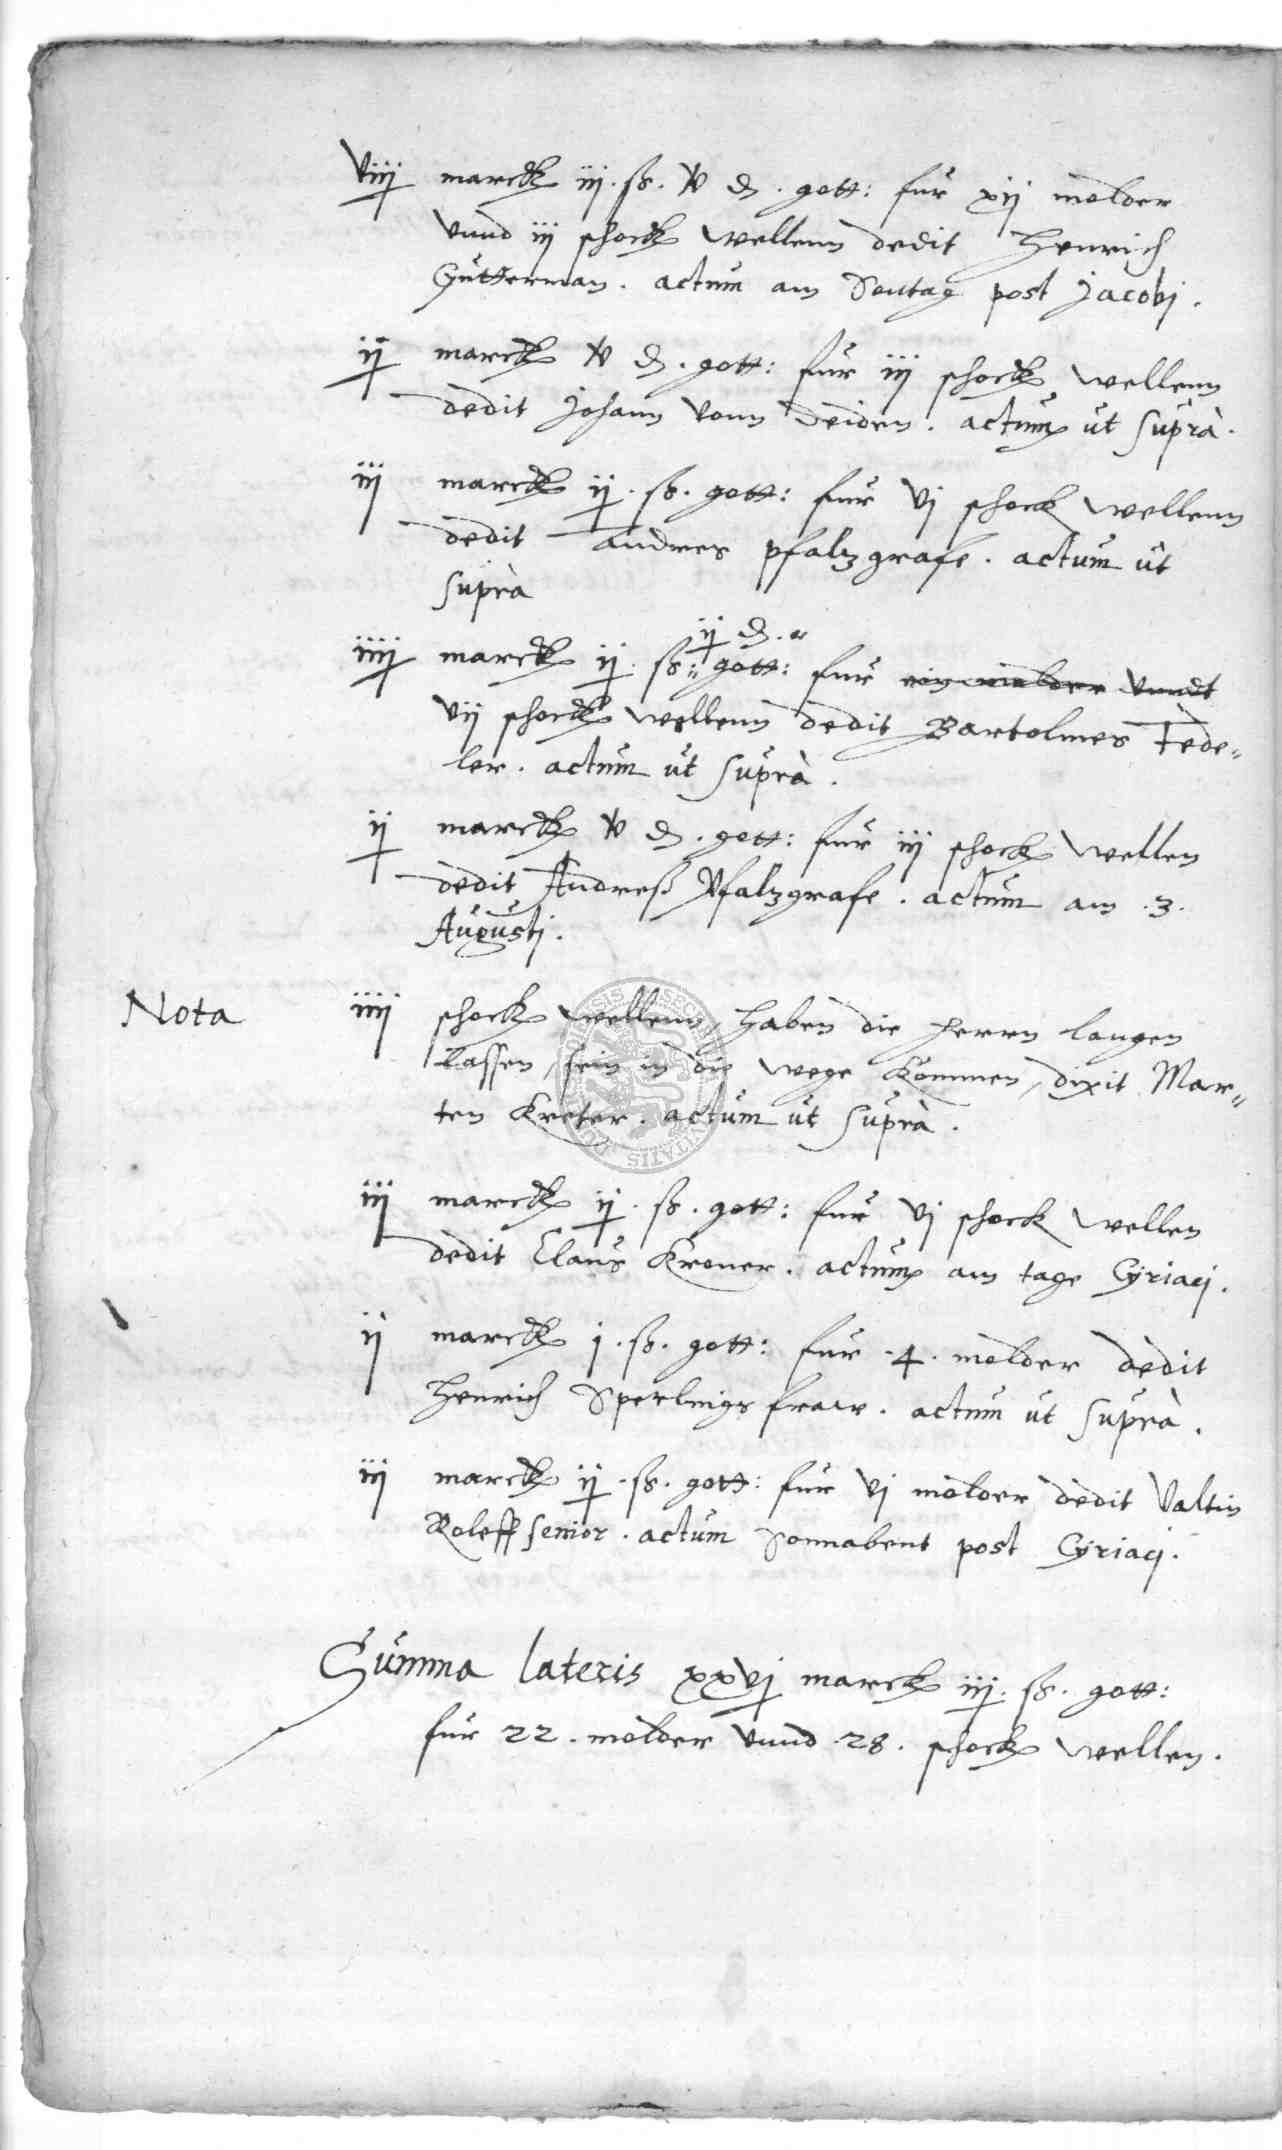 viij marck iij. ß. v ₰. gott: fur xij molder
vnnd iij schock wellenn dedit Henrich
Gutterman. actum am Sontag post Jacobj.
ij marck v ₰. gott: fur iij schock wellenn
dedit Johann vonn Deiden. actum ut suprà.
iij marck ij. ß. gott: fur vj schock wellenn
dedit Andres pfaltzgrafe. actum ut
suprà
ij ₰.
iiij marck ij. ß. gott: fur ein molder vnndt
vij schock wellenn dedit Bartolmes Fede-
ler. actum ut suprà.
ij marck v ₰. gott: fur iij schock wellen
dedit Andreß Pfaltzgrafe. actum am .3.
Augustj.
Nota iiij schock wellenn, haben die herrn langen
lassen, sein in die wege kommen, dixit Mar-
ten Kreter. actum ut suprà.
iij marck ij. ß. gott: fur vj schock wellen
dedit Claus Kroner. actum am tage Cyriacj.
ij marck j. ß. gott: fur .4. molder dedit
Henrich Sperlings fraw. actum ut suprà.
iij marck ij. ß. gott: fur vj molder dedit Valtin
Roleff senior. actum Sonnabent post Cyriacj.
Summa lateris xxvj marck iij. ß. gott:
fur 22. molder vnnd .28. schock wellen.